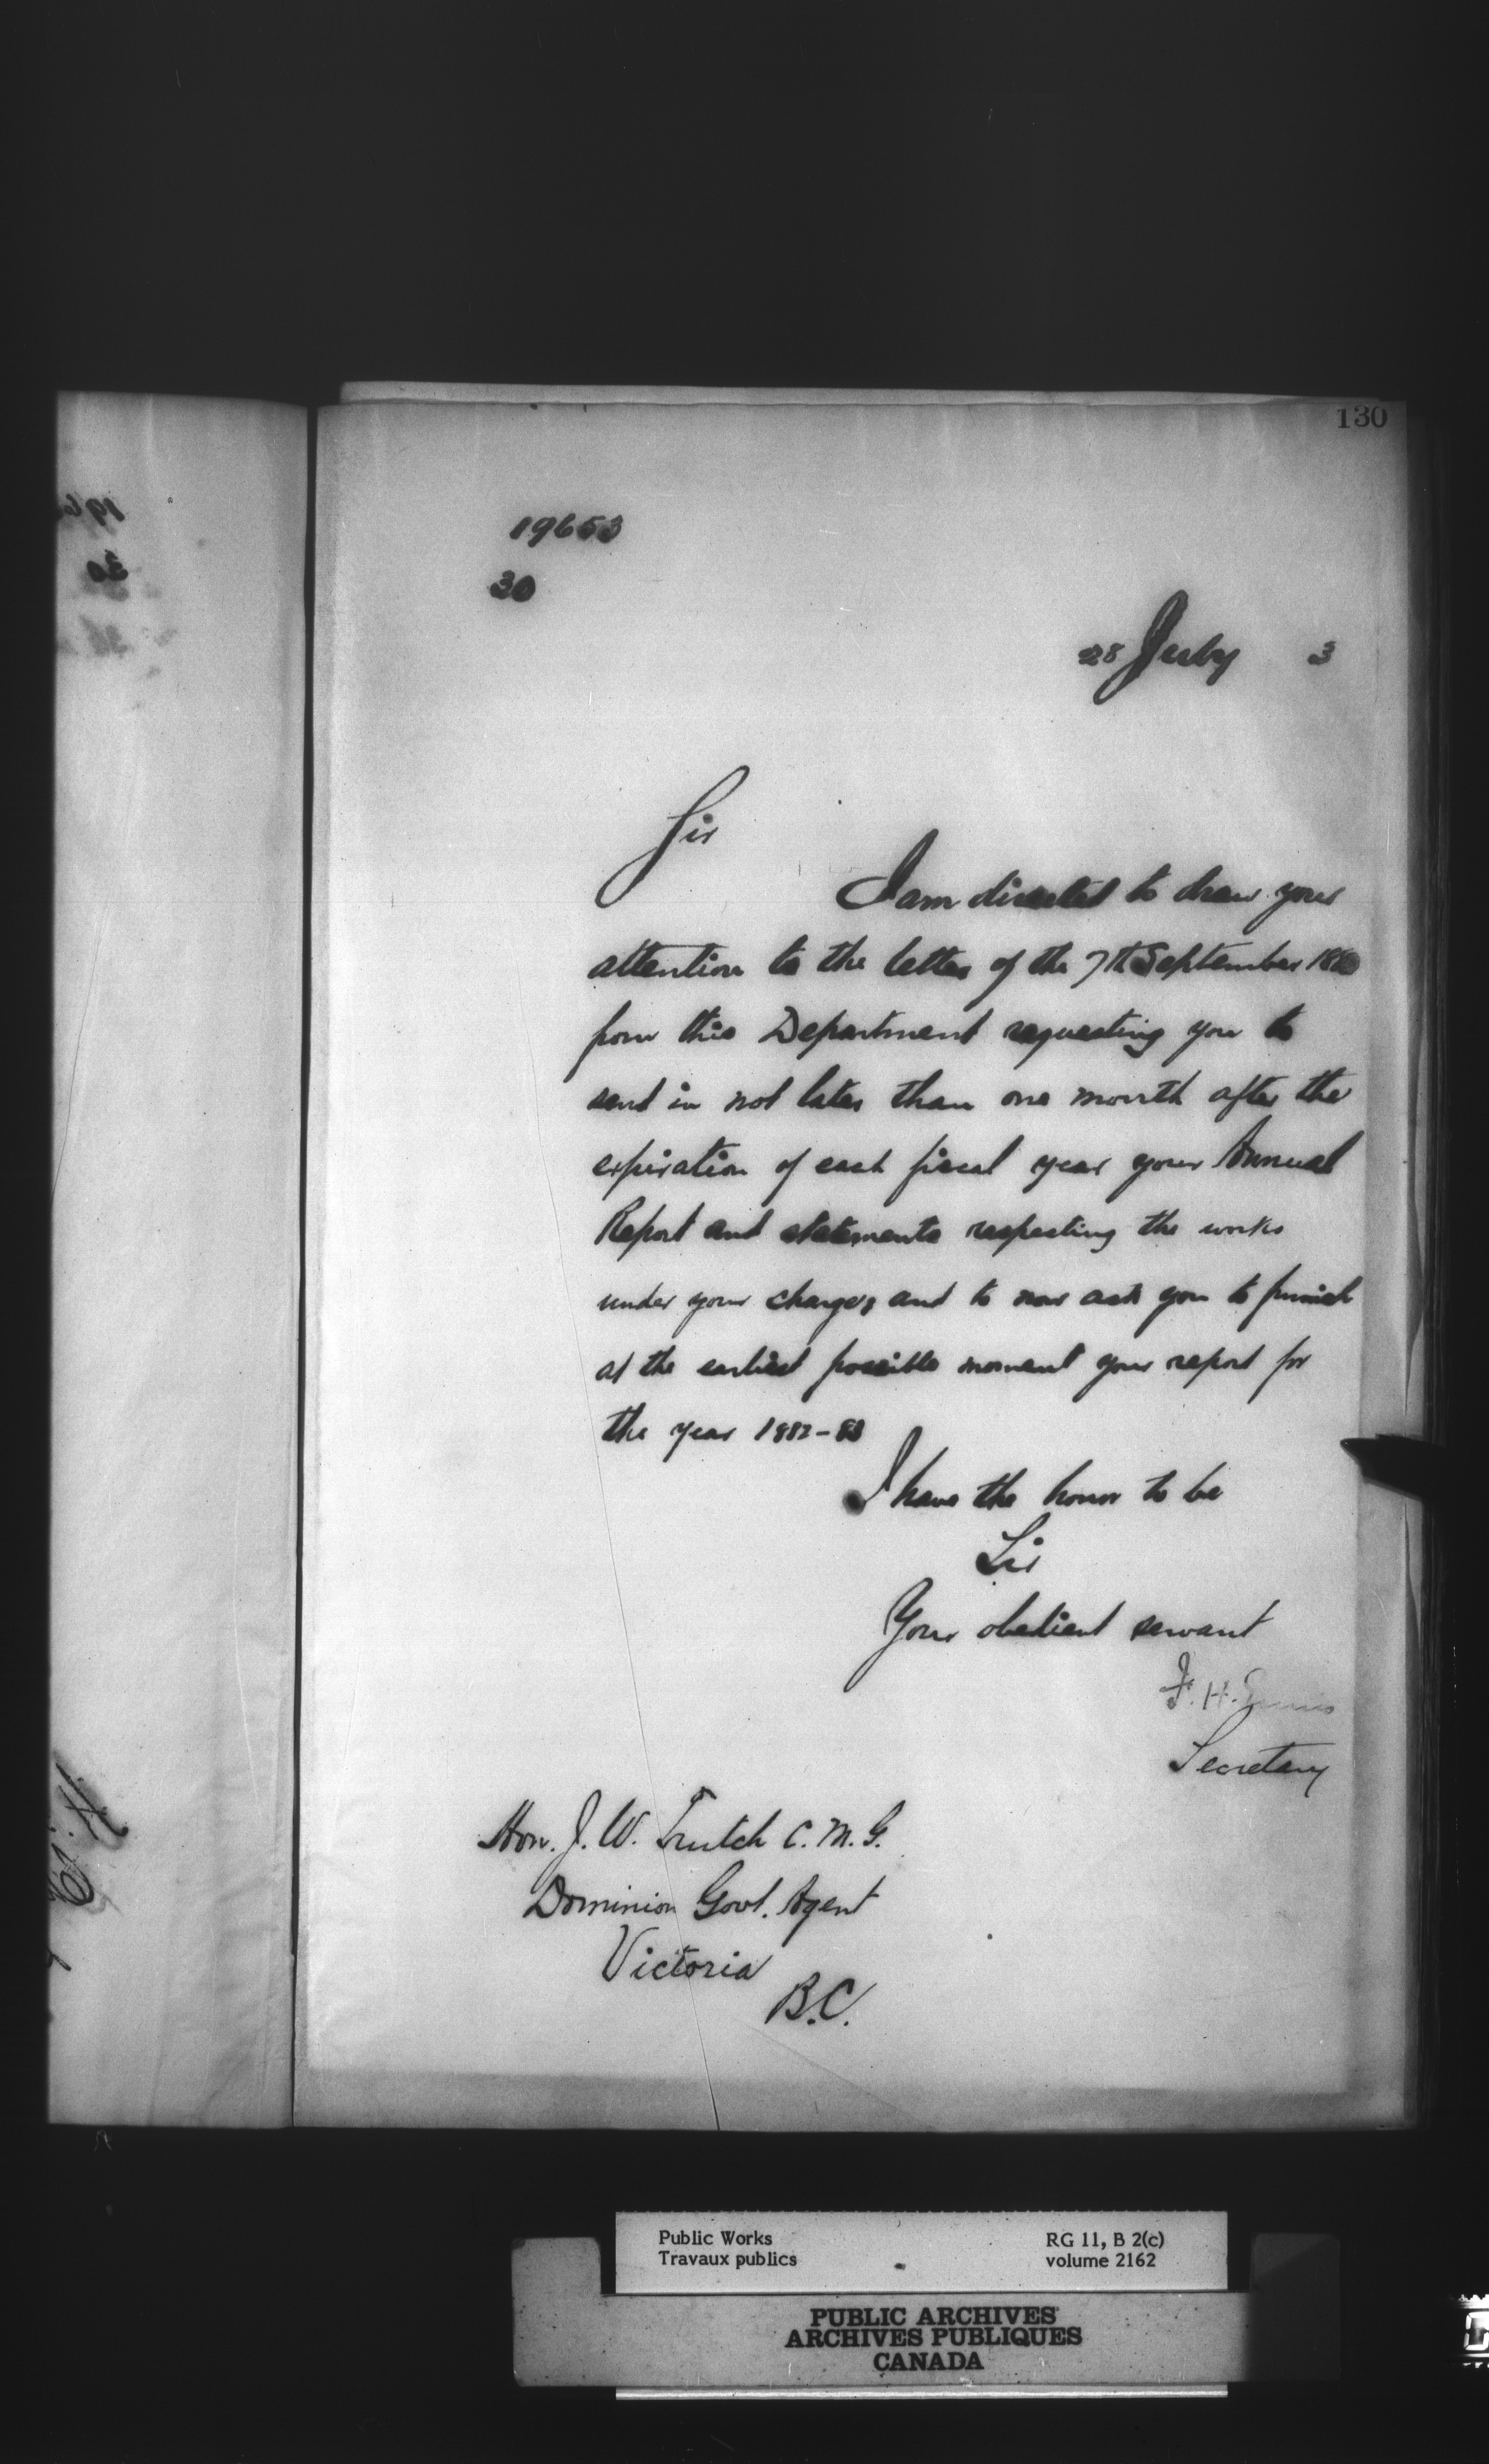 130
19653
30
28 July 3
Sir
I am directed to draw your
attention to the letter of the 7th September
from this Department requesting you to
send in not later than one month after the
expiration of each fiscal year your Annual
Report and statements respecting the works
under your charge, and to now ask you to furnish
at the earliest possible moment your report for
the year 1882-83
I have the honor to be
Sir
Your obedient servant
F. H. Ennis
Secretary
Hon. J. W. Trutch C. M. G.
Dominion Govt. Agent
Victoria
B.C.
Public Works
Travaux publics
RG 11, B 2(c)
volume 2162
PUBLIC ARCHIVES
ARCHIVES PUBLIQUES
CANADA